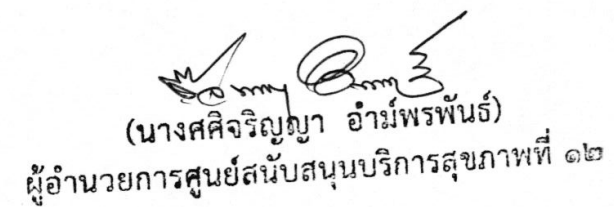 (นางศศิจริญญา อำม์พรพันธ์)
ผู้อำนวยการศูนย์สนับสนุนบริการสุขภาพที่ ๑๒